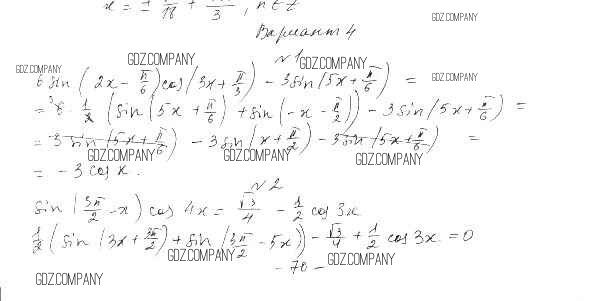 x = ± π/18 + πn/3, n ∈ Z
GDZ.COMPANY
Вариант 4
GDZ.COMPANY
№1
GDZ.COMPANY
6 sin(2x - π/6) cos(3x + π/3) - 3 sin(5x + π/6) =
GDZ.COMPANY
= 6 · 1/2 (sin(5x + π/6) + sin(-x - π/2)) - 3 sin(5x + π/6) =
= 3 sin(5x + π/6) - 3 sin(x + π/2) - 3 sin(5x + π/6) =
GDZ.COMPANY GDZ.COMPANY GDZ.COMPANY
= - 3 cos x.
№2
sin(3π/2 - x) cos 4x = √3/4 - 1/2 cos 3x
1/2 (sin(3x + 3π/2) + sin(3π/2 - 5x)) - √3/4 + 1/2 cos 3x = 0
GDZ.COMPANY GDZ.COMPANY
- 70 -
GDZ.COMPANY